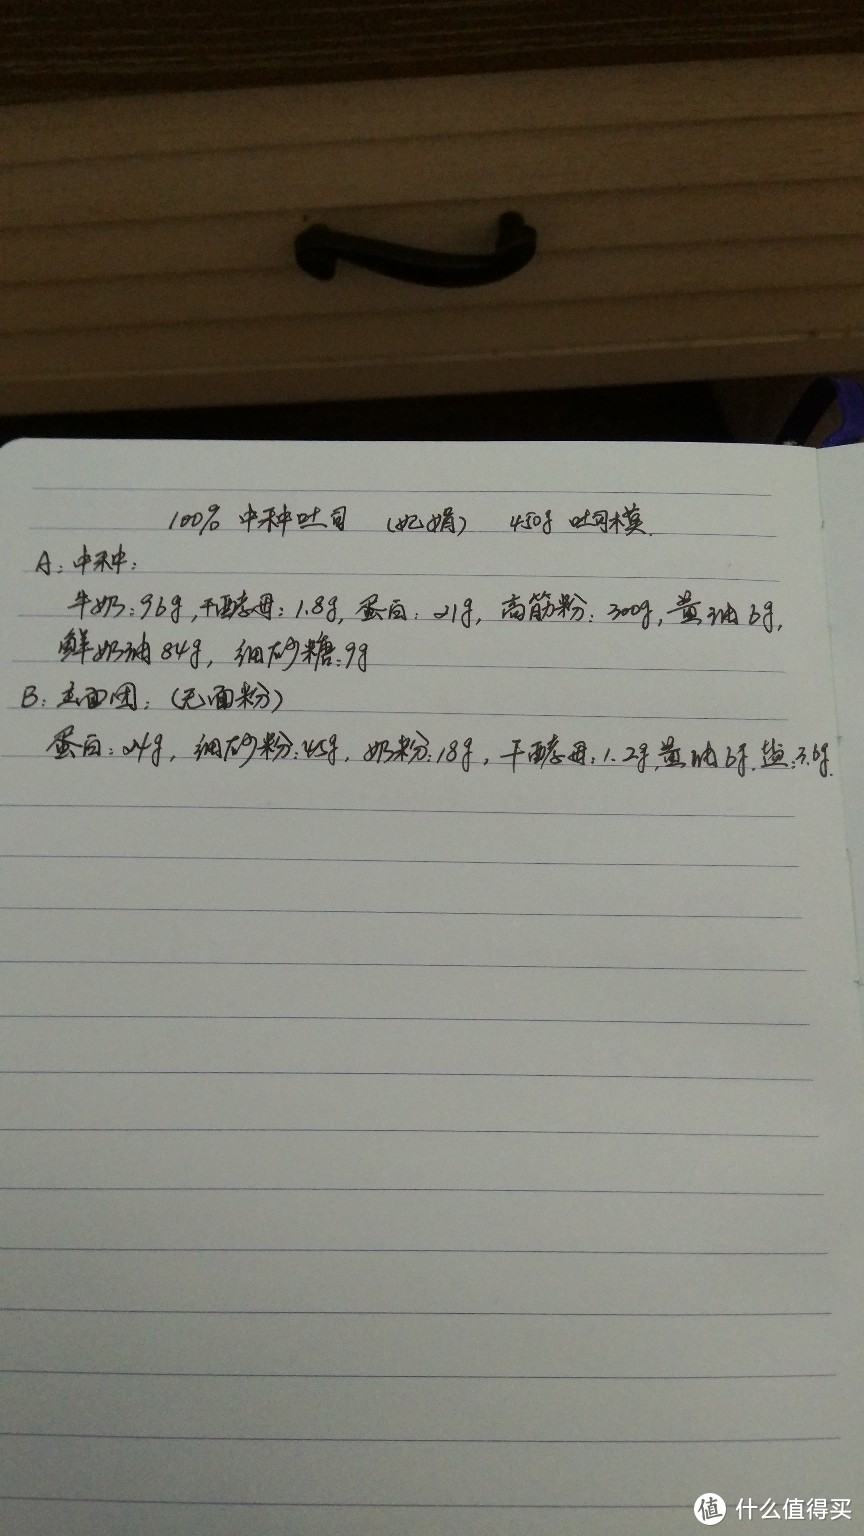 100% 中种吐司 (妃娟) 450g 吐司模.
A: 中种:
牛奶: 96g, 干酵母: 1.8g, 蛋白: 21g, 高筋粉: 300g, 黄油 6g,
鲜奶油 84g, 细砂糖: 9g
B: 主面团: (无面粉)
蛋白: 24g, 细砂粉: 45g, 奶粉: 18g, 干酵母: 1.2g, 黄油 6g, 盐: 3.6g.
值 什么值得买